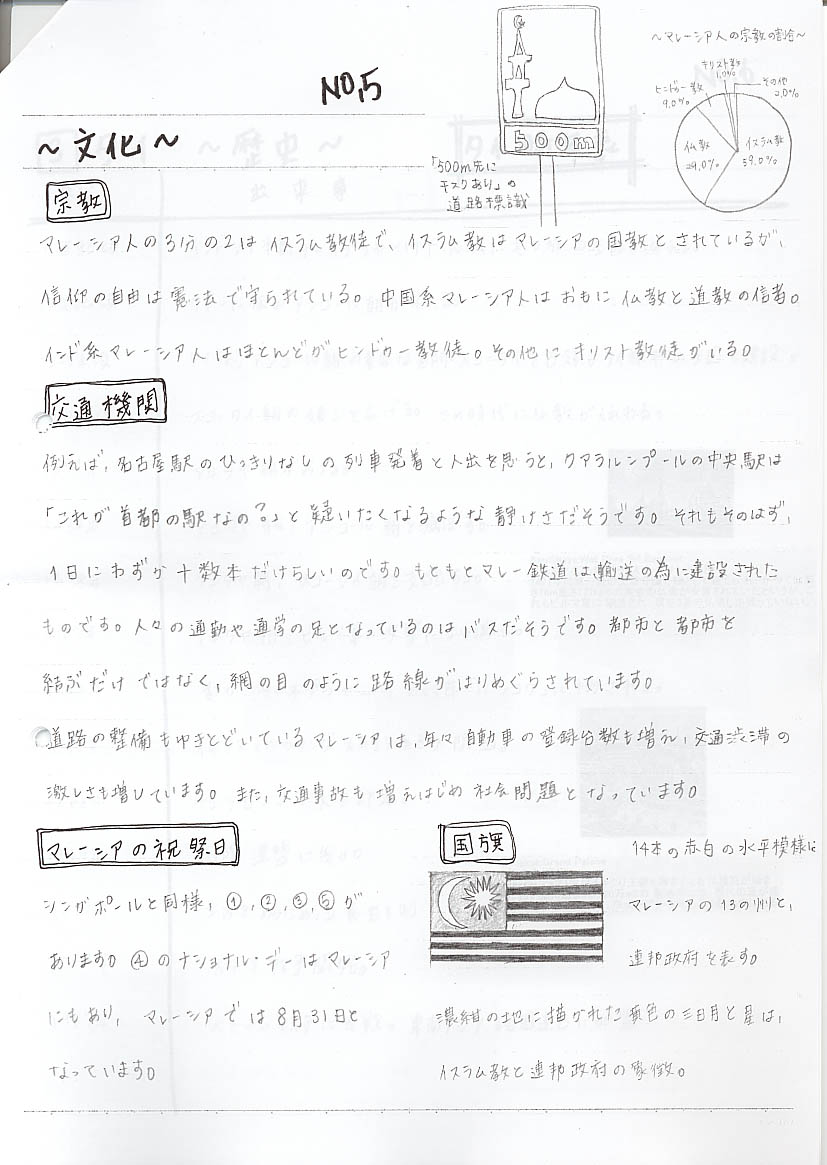 NO,5
～文化～
GATAT
500m
「500m先に
モスクあり」の
道路標識
～マレーシア人の宗教の割合～
キリスト教
1.0%
その他
2.0%
ヒンドゥー教
9.0%
仏教
29.0%
イスラム教
59.0%
宗教
マレーシア人の3分の2はイスラム教徒で、イスラム教はマレーシアの国教とされているが、
信仰の自由は憲法で守られている。中国系マレーシア人はおもに仏教と道教の信者。
インド系マレーシア人はほとんどがヒンドゥー教徒。その他にキリスト教徒がいる。
交通機関
例えば、名古屋駅のひっきりなしの列車発着と人出を思うと、クアラルンプールの中央駅は
「これが首都の駅なの？」と疑いたくなるような静けさだそうです。それもそのはず、
1日にわずか十数本だけらしいのです。もともとマレー鉄道は、輸送の為に建設された
ものです。人々の通勤や通学の足となっているのはバスだそうです。都市と都市を
結ぶだけではなく、網の目のように路線がはりめぐらされています。
道路の整備もゆきとどいているマレーシアは、年々自動車の登録台数も増え、交通渋滞の
激しさも増しています。また、交通事故も増えはじめ社会問題となっています。
マレーシアの祝祭日
シンガポールと同様、①,②,③,⑤が
あります。④のナショナル・デーはマレーシア
にもあり、マレーシアでは8月31日と
なっています。
国旗
14本の赤白の水平模様は
マレーシアの13の州と、
連邦政府を表す。
濃紺の地に描かれた黄色の三日月と星は、
イスラム教と連邦政府の象徴。